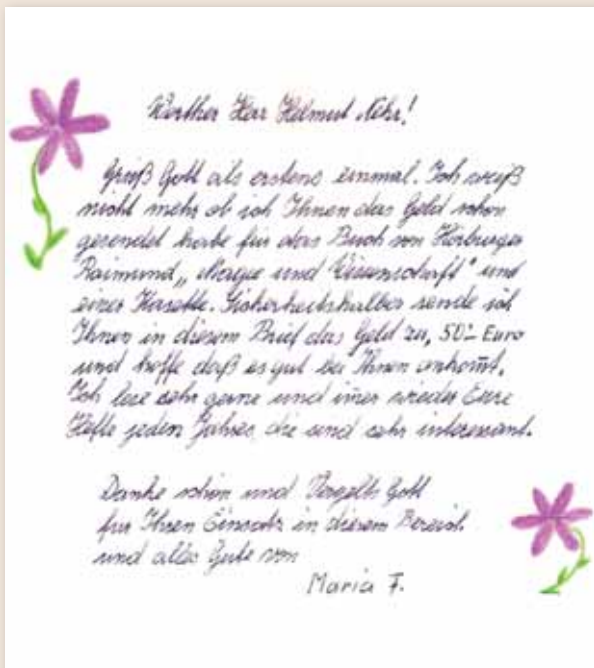 Werther Herr Helmut Nehr!
Grüß Gott als erstens einmal. Ich weiß
nicht mehr ob ich Ihnen das Geld schon
gesendet habe für das Buch von Horburger
Raimund „Magie und Wissenschaft" und
einer Kasette. Sicherheitshalber sende ich
Ihnen in diesem Brief das Geld zu, 50.- Euro
und hoffe daß es gut bei Ihnen ankom̄t.
Ich lese sehr gerne und im̄er wieder Eure
Hefte jeden Jahres, die sind sehr interessant.
Danke schön und Vergelts Gott
für Ihren Einsatz in diesem Bereich
und alles Gute von
Maria F.